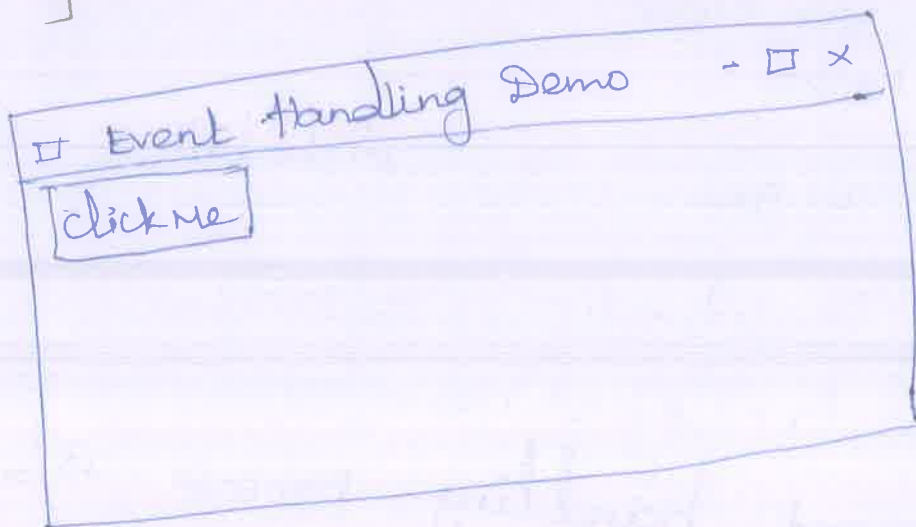 }
Event Handling Demo - □ ×
Click Me